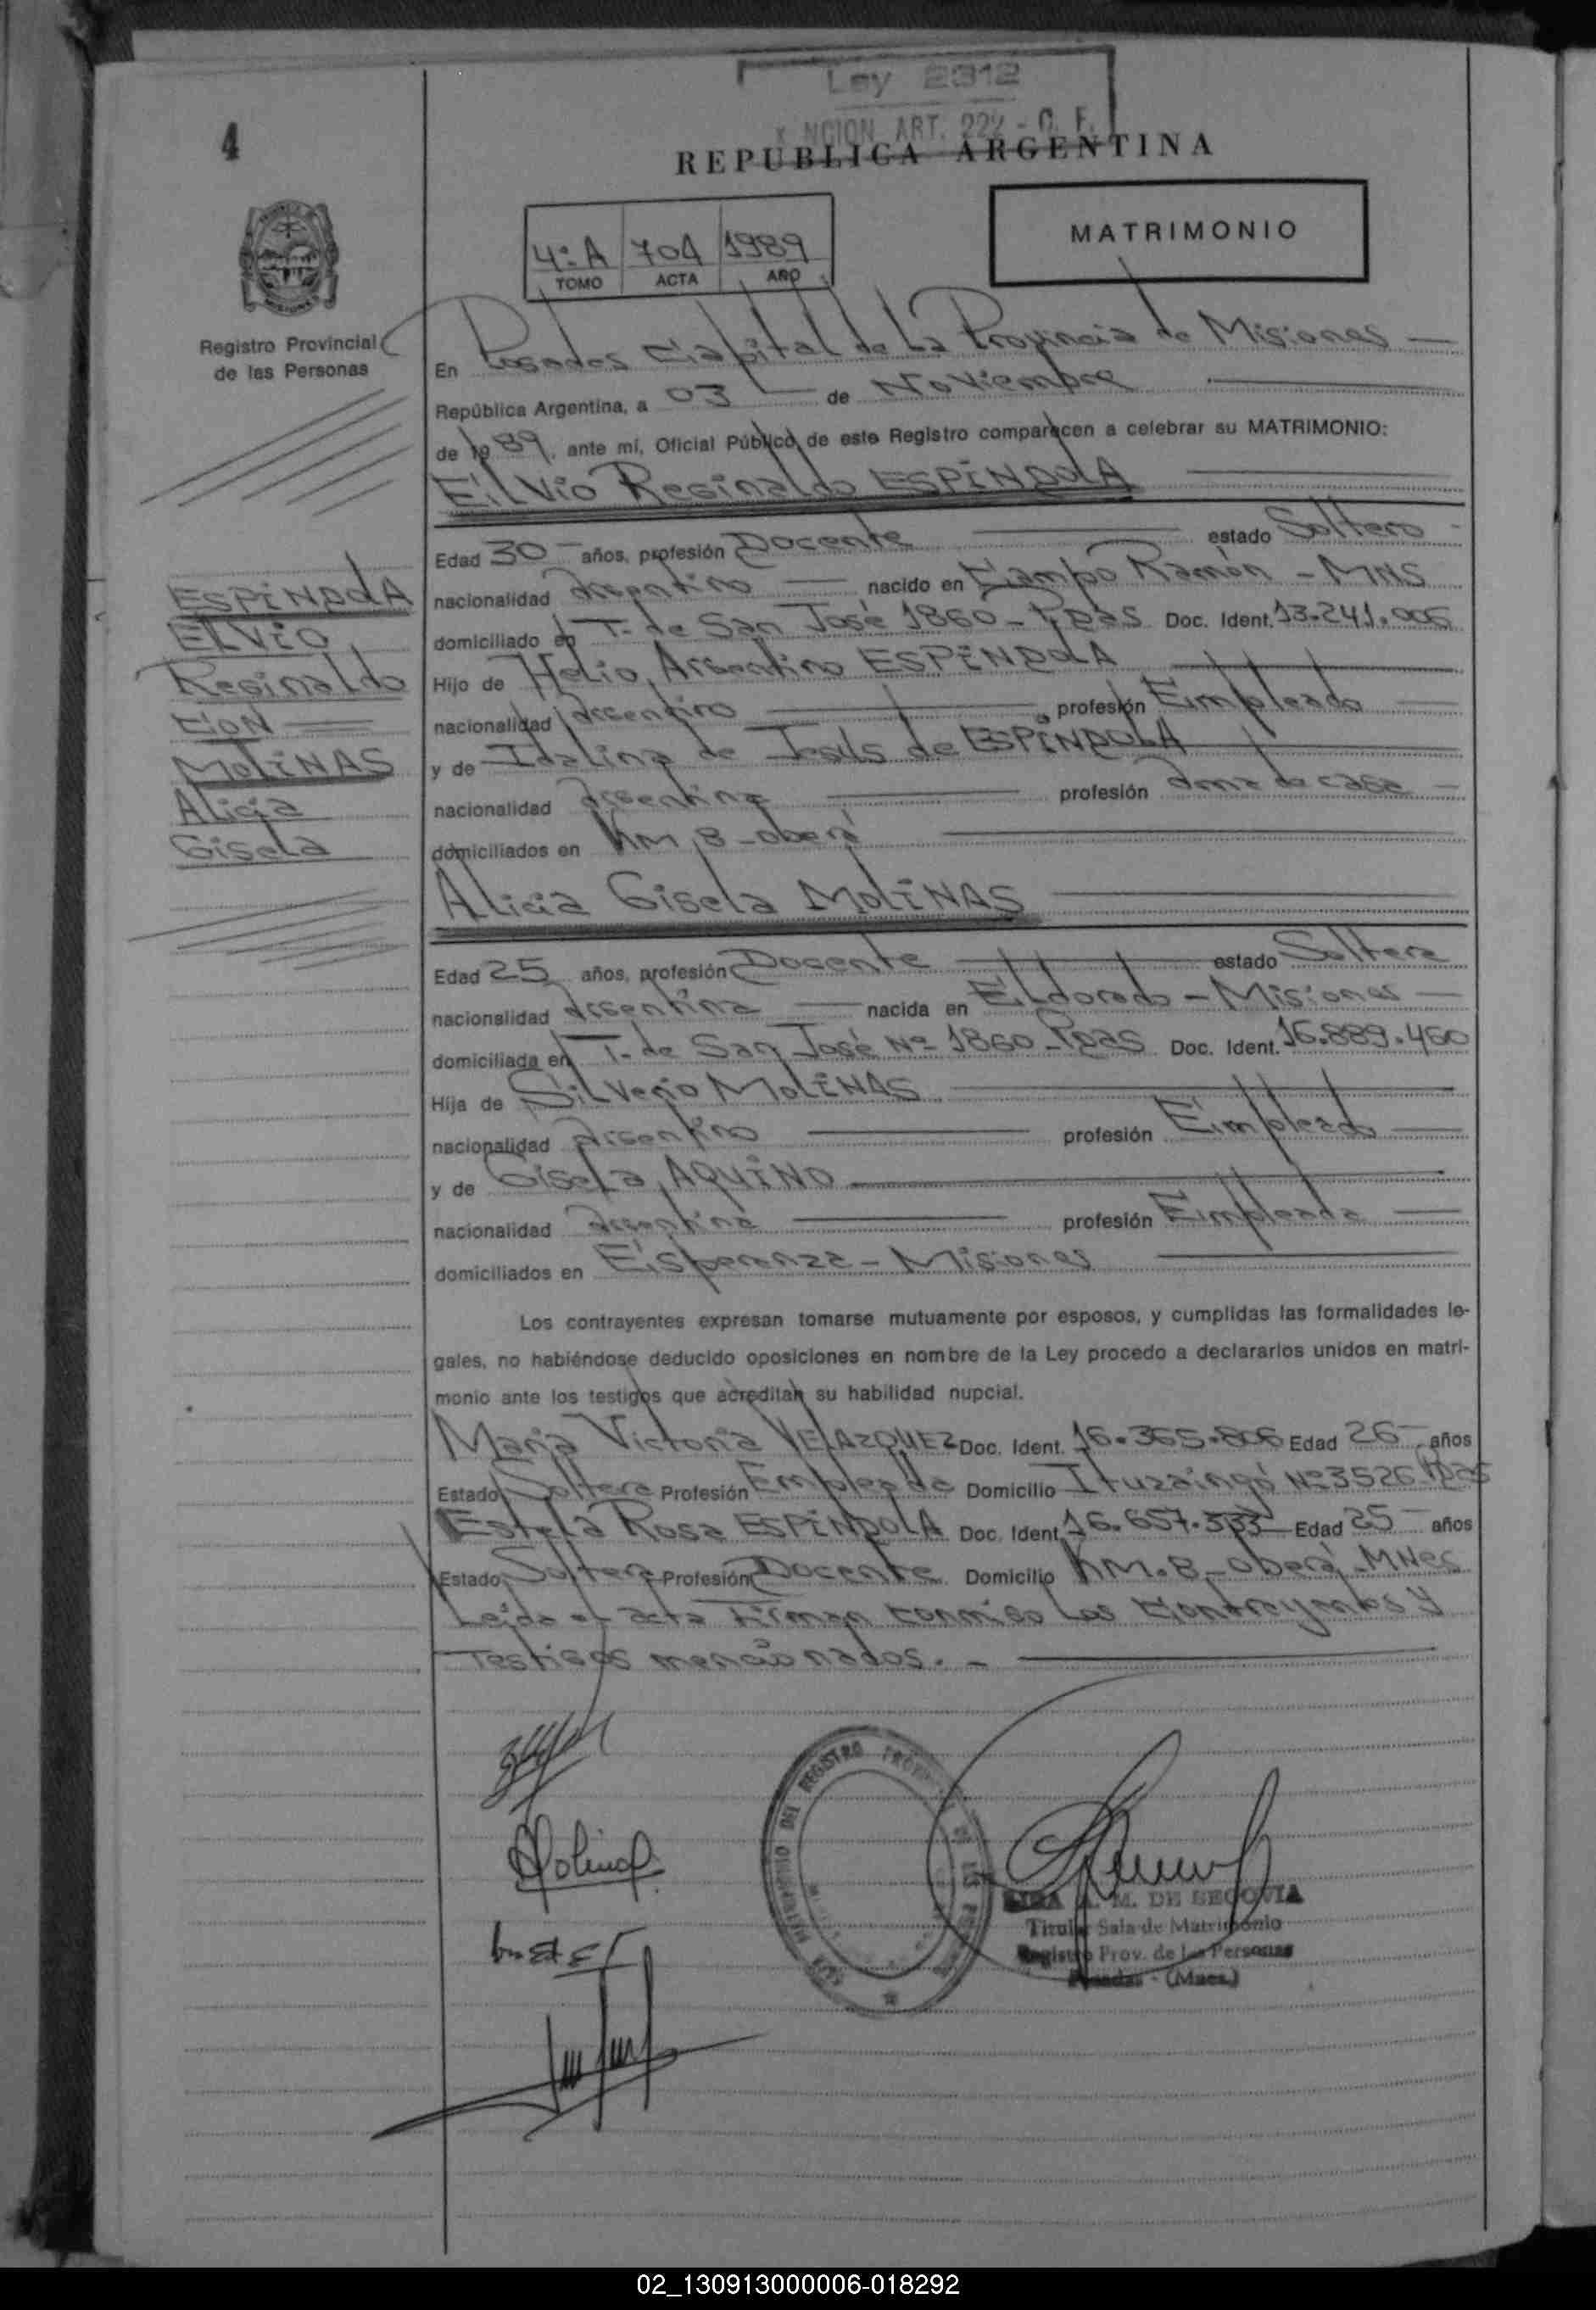 Ley 2312
ART. 222 - C. F.
4
REPUBLICA ARGENTINA
4º A 704 1989
TOMO ACTA AÑO
MATRIMONIO
Registro Provincial
de las Personas
En Posadas Capital de La Provincia de Misiones
República Argentina, a 03 de Noviembre
de 1989, ante mí, Oficial Público de este Registro comparecen a celebrar su MATRIMONIO:
Elvio Reginaldo ESPINDOLA
Edad 30 años, profesión Docente estado Soltero
nacionalidad Argentino nacido en Campo Ramón - MNS
domiciliado en T. de San José 1860 - Pdas Doc. Ident. 13.241.006
Hijo de Helio Argentino ESPINDOLA
nacionalidad Argentino profesión Empleado
y de Idalina de Jesús de ESPINDOLA
nacionalidad Argentina profesión Ama de casa
domiciliados en KM 8 - Oberá
ESPINDOLA
ELVIO
Reginaldo
CON
MOLINAS
Alicia
Gisela
Alicia Gisela MOLINAS
Edad 25 años, profesión Docente estado Soltera
nacionalidad Argentina nacida en Eldorado - Misiones
domiciliada en T. de San José Nº 1860 - Pdas Doc. Ident. 16.889.460
Hija de Silverio MOLINAS
nacionalidad Argentino profesión Empleado
y de Gisela AQUINO
nacionalidad Argentina profesión Empleada
domiciliados en Esperanza - Misiones
Los contrayentes expresan tomarse mutuamente por esposos, y cumplidas las formalidades le-
gales, no habiéndose deducido oposiciones en nombre de la Ley procedo a declararlos unidos en matri-
monio ante los testigos que acreditan su habilidad nupcial.
Maria Victoria VELAZQUEZ Doc. Ident. 16.365.806 Edad 26 años
Estado Soltera Profesión Empleada Domicilio Ituzaingó Nº 3526 Pdas
Estela Rosa ESPINDOLA Doc. Ident. 16.657.333 Edad 25 años
Estado Soltera Profesión Docente Domicilio KM. 8 - Oberá MNes
Leida el acta Firman conmigo Los Contrayentes y
Testigos mencionados. -
Molinas
DEL REGISTRO
M. DE SEGOVIA
Titular Sala de Matrimonio
Registro Prov. de las Personas
Posadas - (Mnes.)
02_130913000006-018292